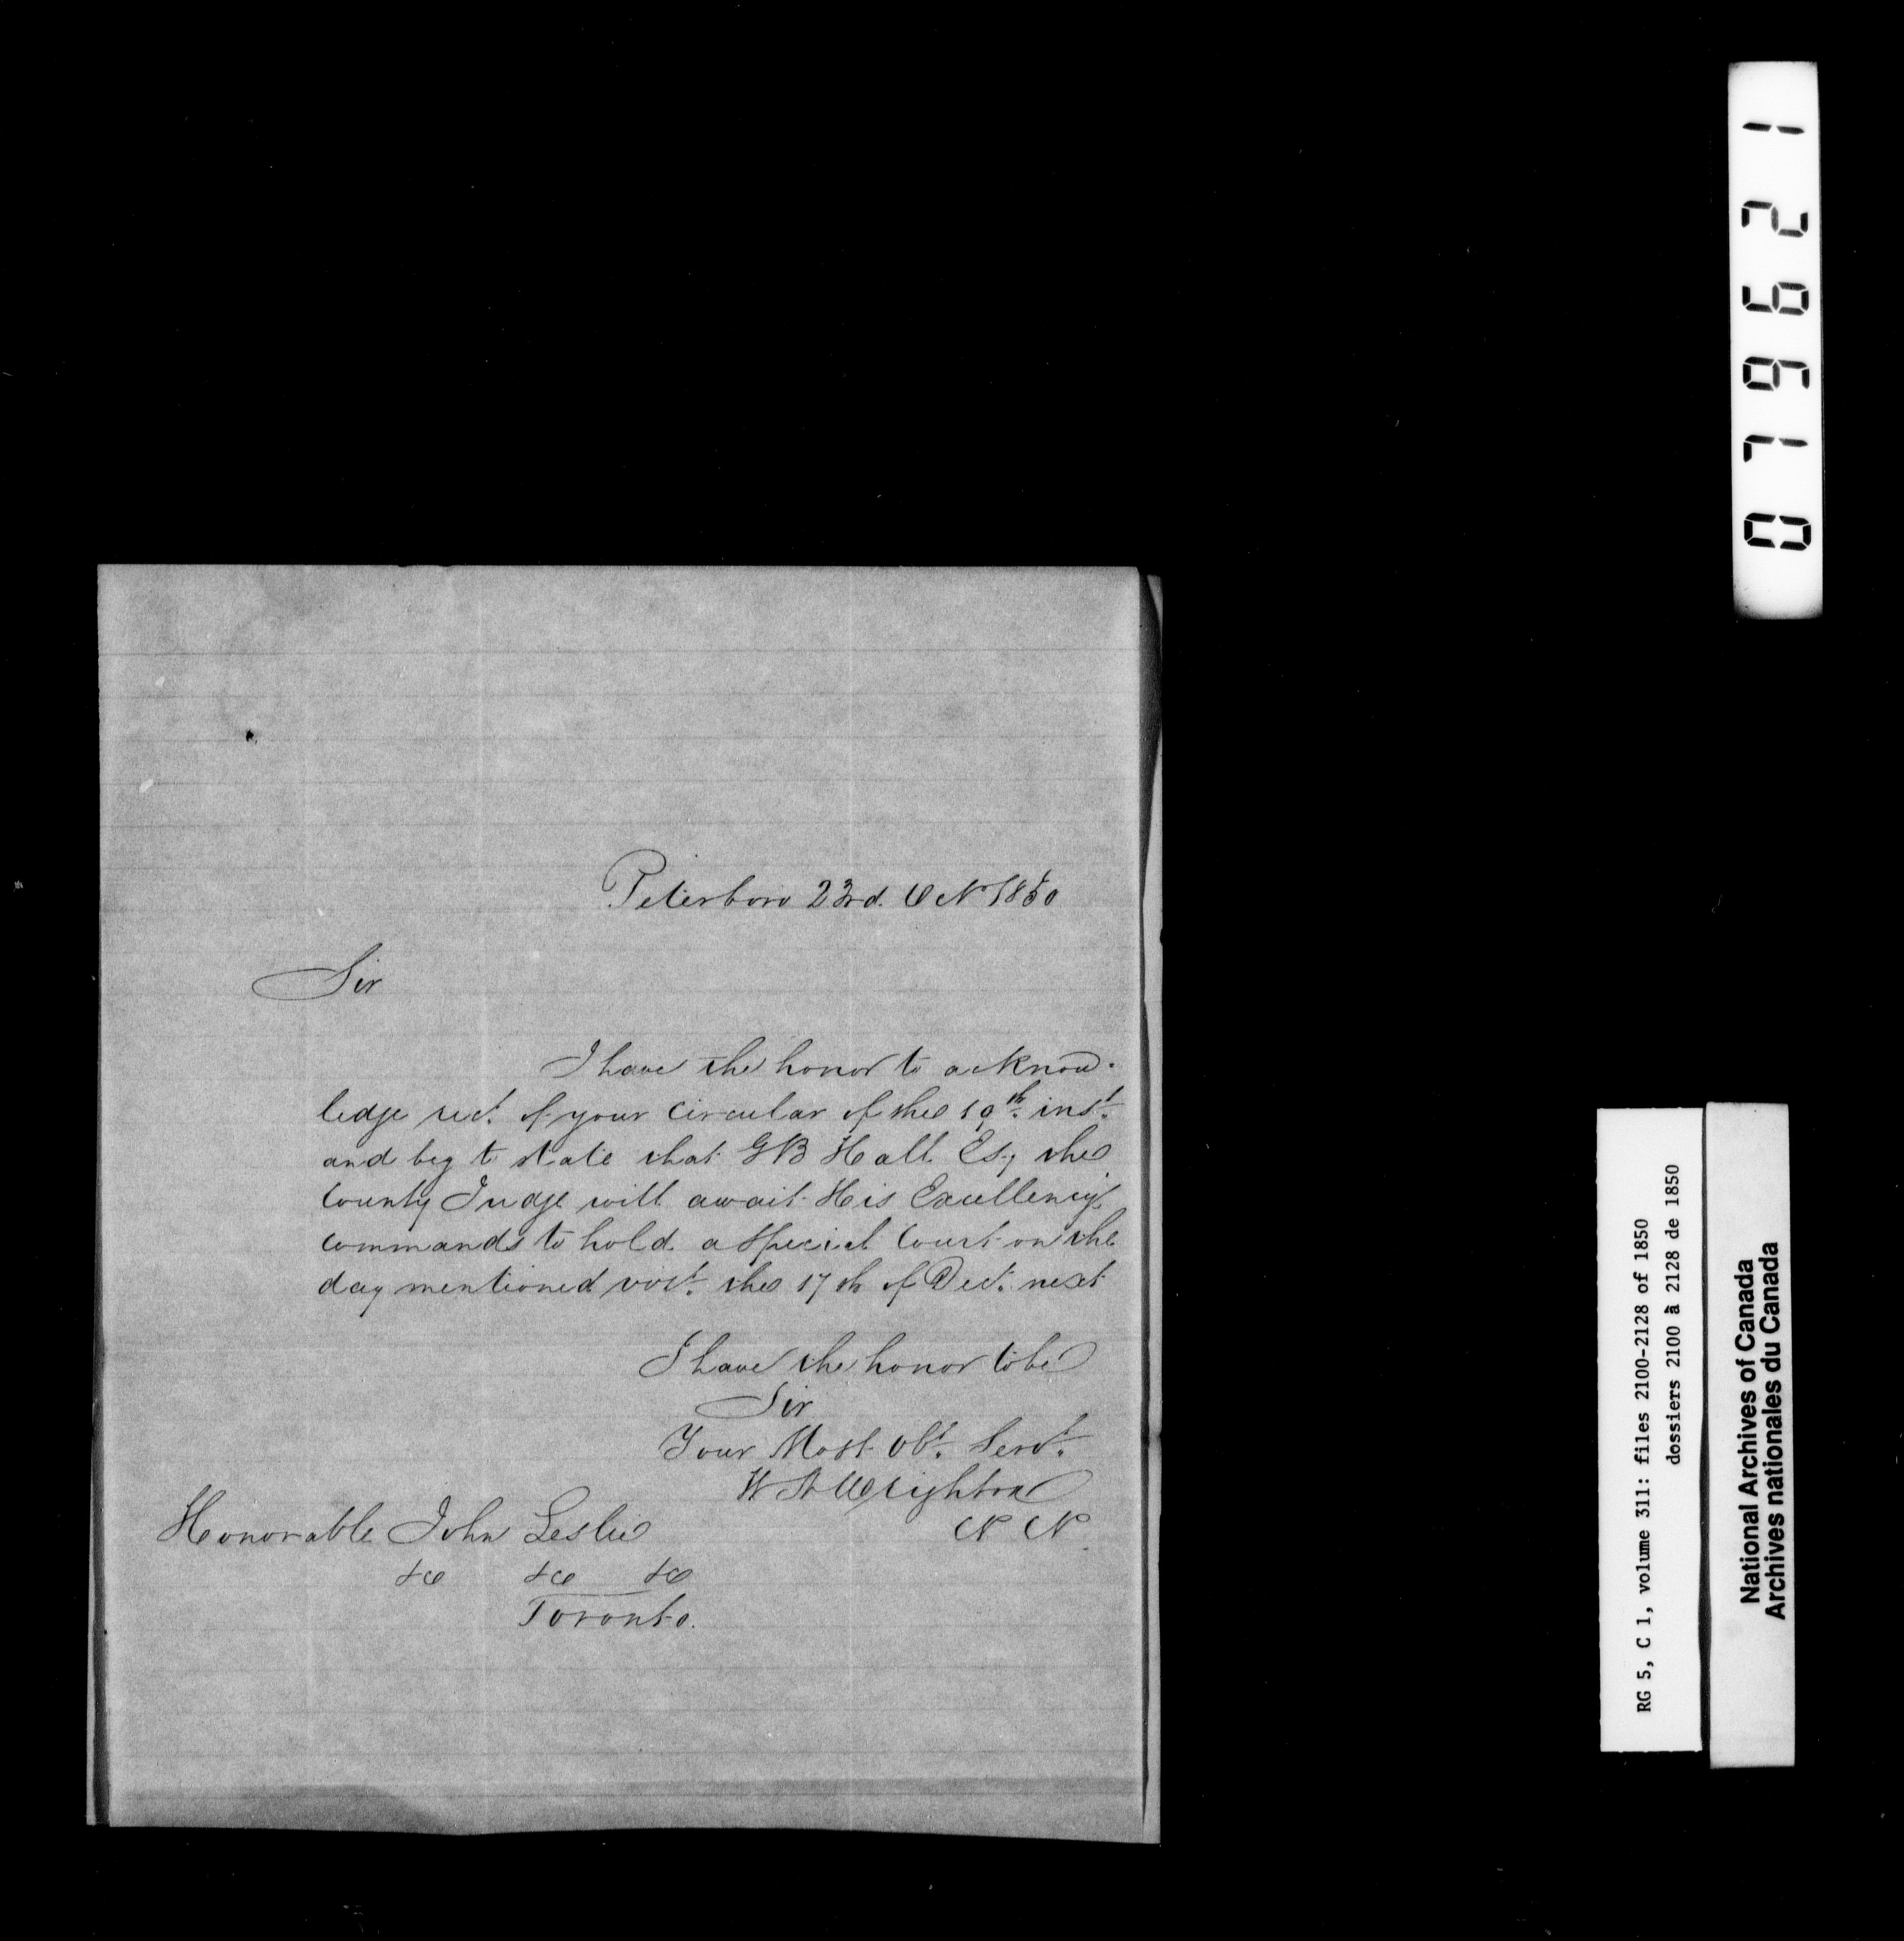 Peterboro 23rd. Oct 1850
Sir
I have the honor to acknow-
ledge rect. of your Circular of the 19th. inst.
and beg to state that GB Hall Esq the
County Judge will await His Excellency's
commands to hold a special Court on the
day mentioned vizt. the 17th of Dect. next
I have the honor to be
Sir
Your Most Obt. Servt.
W H Wrighton
Honorable John Leslie
&c &c &c
Toronto.
071962 1
RG 5, C 1, volume 311: files 2100-2128 of 1850
dossiers 2100 à 2128 de 1850
National Archives of Canada
Archives nationales du Canada